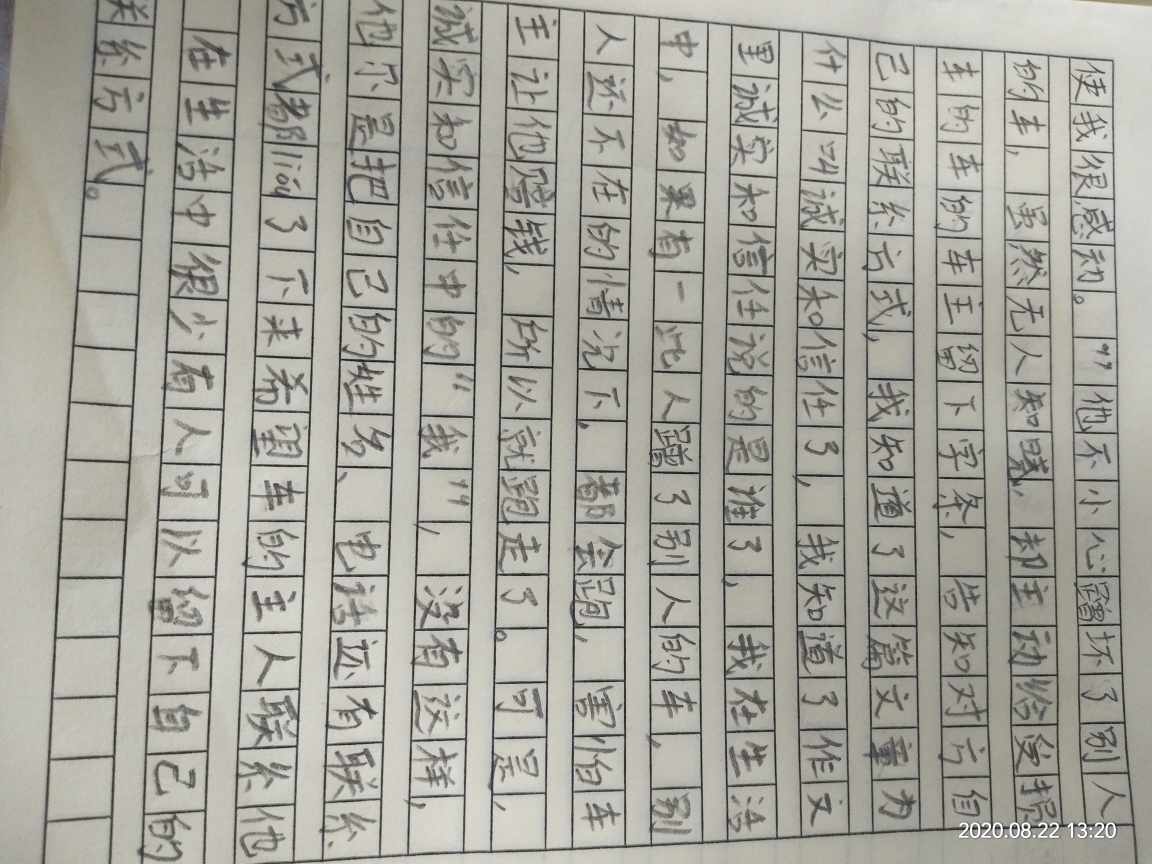 使我很感动。”他不小心蹭坏了别人
的车，虽然无人知晓，却主动给受损
车的车的车主留下字条，告知对方自
己的联系方式，我知道了这篇文章为
什么叫诚实和信任了，我知道了作文
里诚实和信任说的是谁了，我在生活
中，如果有一些人蹭了别人的车，别
人还不在的情况下，都会跑，害怕车
主让他赔钱，所以就跑走了。可是，
诚实和信任中的“我”，没有这样，
他尔是把自己的姓名、电话还有联系
方式都lióu了下来希望车的主人联系他
在生活中很少有人可以留下自己的
联系方式。
2020.08.22 13:20